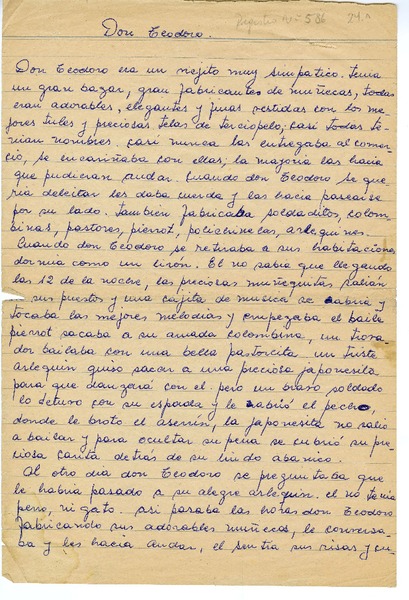 Registro Nº 586 24.
Don Teodoro.
Don Teodoro era un viejito muy simpatico. tenia
un gran bazar, gran fabricantes de muñecas, todas
eran adorables, elegantes y finas vestidas con los me
jores tules y preciosas telas de terciopelo, casi todas te
nian nombres. casi nunca las entregaba al comer
cio, se encariñaba con ellas, la mayoria las hacia
que pudieran andar. Cuando don Teodoro se que
ria deleitar les daba cuerda y las hacia pasearse
por su lado. tambien fabricaba soldaditos, colom
binas, pastores, pierrot, polichinelas, arlequines.
Cuando don Teodoro se retiraba a sus habitaciones
dormia como un liron. El no sabia que llegando
las 12 de la noche, las preciosas muñequitas salian
a sus puestos y una cajita de musica se abria y
tocaba las mejores melodias y empezaba el baile
pierrot sacaba a su amada colombina, un trova
dor bailaba con una bella pastorcita un triste
arlequin quiso sacar a una preciosa japonesita
para que danzará con el. pero un bravo soldado
lo detuvo con su espada y le abrió el pecho,
donde le broto el aserrin, la japonesita no salio
a bailar y para ocultar su pena se cubrió su pre
ciosa carita detras de su lindo abanico.
Al otro dia don Teodoro se preguntaba que
le habria pasado a su alegre arlequin. el no tenia
perro, ni gato. asi pasaba las horas don Teodoro
fabricando sus adorables muñecas, le conversa
ba y les hacia andar, el sentia sus risas y cu-